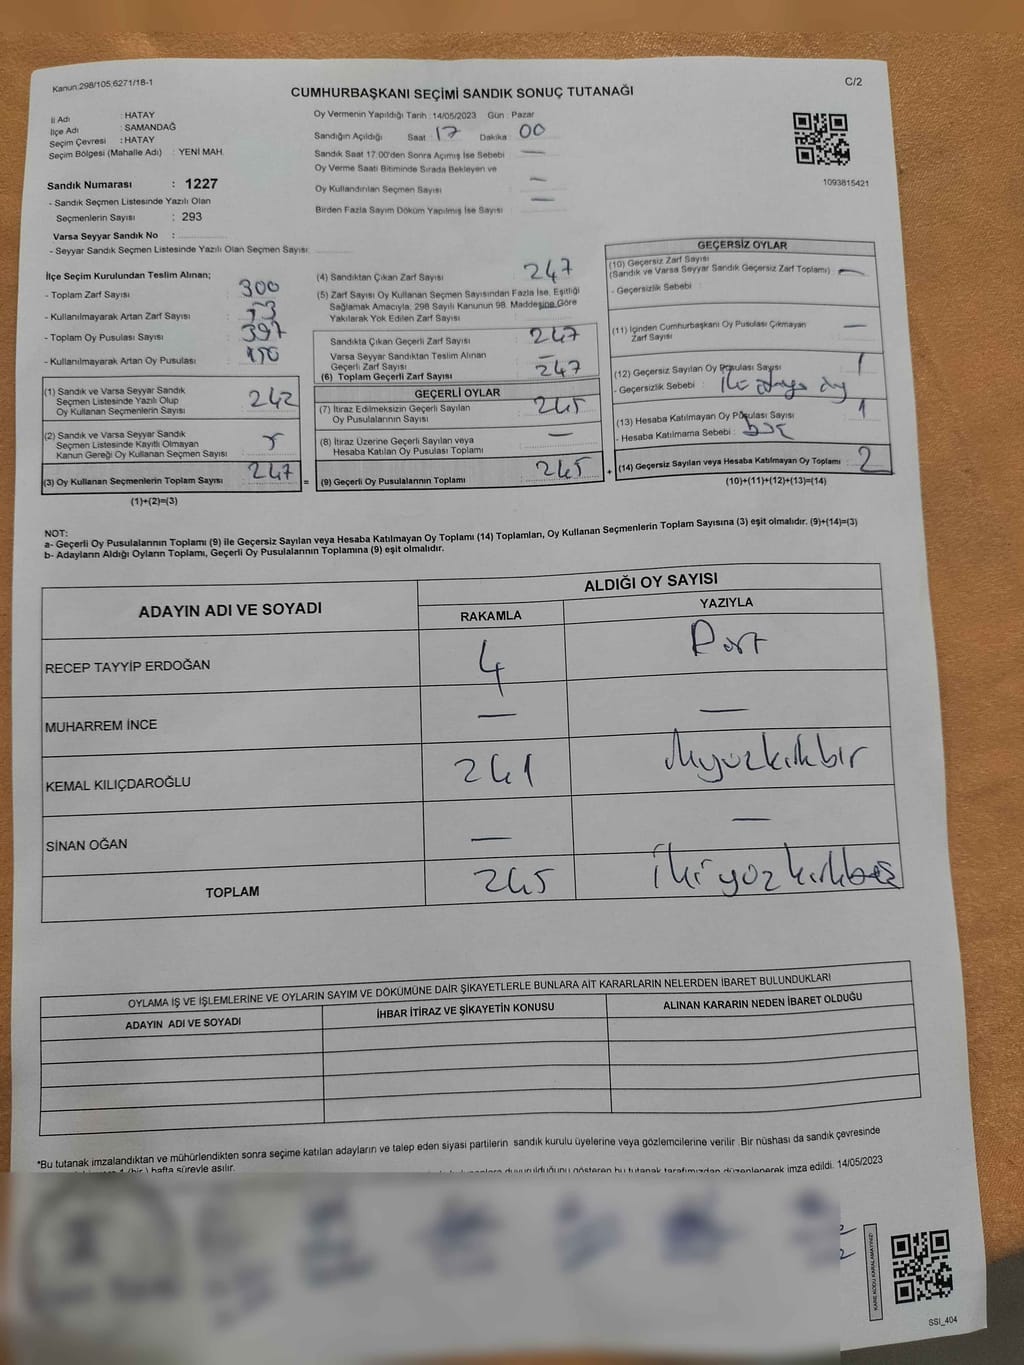 Kanun.298/105,6271/18-1
C/2
CUMHURBAŞKANI SEÇİMİ SANDIK SONUÇ TUTANAĞI
İl Adı : HATAY
İlçe Adı : SAMANDAĞ
Seçim Çevresi : HATAY
Seçim Bölgesi (Mahalle Adı) : YENİ MAH.
Oy Vermenin Yapıldığı Tarih : 14/05/2023 Gün : Pazar
Sandığın Açıldığı Saat : 17 Dakika : 00
Sandık Saat 17.00'den Sonra Açımış İse Sebebi —
Oy Verme Saati Bitiminde Sırada Bekleyen ve
Oy Kullandırılan Seçmen Sayısı —
Birden Fazla Sayım Döküm Yapılmış İse Sayısı —
1093815421
Sandık Numarası : 1227
- Sandık Seçmen Listesinde Yazılı Olan
Seçmenlerin Sayısı : 293
Varsa Seyyar Sandık No :
- Seyyar Sandık Seçmen Listesinde Yazılı Olan Seçmen Sayısı:
İlçe Seçim Kurulundan Teslim Alınan;
- Toplam Zarf Sayısı 300
- Kullanılmayarak Artan Zarf Sayısı
- Toplam Oy Pusulası Sayısı 397
- Kullanılmayarak Artan Oy Pusulası
(1) Sandık ve Varsa Seyyar Sandık
Seçmen Listesinde Yazılı Olup
Oy Kullanan Seçmenlerin Sayısı 242
(2) Sandık ve Varsa Seyyar Sandık
Seçmen Listesinde Kayıtlı Olmayan
Kanun Gereği Oy Kullanan Seçmen Sayısı 5
(3) Oy Kullanan Seçmenlerin Toplam Sayısı 247
=
(1)+(2)=(3)
(4) Sandıktan Çıkan Zarf Sayısı 247
(5) Zarf Sayısı Oy Kullanan Seçmen Sayısından Fazla İse, Eşitliği
Sağlamak Amacıyla, 298 Sayılı Kanunun 98. Maddesine Göre
Yakılarak Yok Edilen Zarf Sayısı
Sandıkta Çıkan Geçerli Zarf Sayısı 247
Varsa Seyyar Sandıktan Teslim Alınan
Geçerli Zarf Sayısı —
(6) Toplam Geçerli Zarf Sayısı 247
GEÇERLİ OYLAR
(7) İtiraz Edilmeksizin Geçerli Sayılan
Oy Pusulalarının Sayısı 245
(8) İtiraz Üzerine Geçerli Sayılan veya
Hesaba Katılan Oy Pusulası Toplamı —
(9) Geçerli Oy Pusulalarının Toplamı 245
+
GEÇERSİZ OYLAR
(10) Geçersiz Zarf Sayısı
(Sandık ve Varsa Seyyar Sandık Geçersiz Zarf Toplamı) —
- Geçersizlik Sebebi :
(11) İçinden Cumhurbaşkanı Oy Pusulası Çıkmayan
Zarf Sayısı —
(12) Geçersiz Sayılan Oy Pusulası Sayısı 1
- Geçersizlik Sebebi : iki adaya oy
(13) Hesaba Katılmayan Oy Pusulası Sayısı 1
- Hesaba Katılmama Sebebi : boş
(14) Geçersiz Sayılan veya Hesaba Katılmayan Oy Toplamı 2
(10)+(11)+(12)+(13)=(14)
NOT:
a- Geçerli Oy Pusulalarının Toplamı (9) ile Geçersiz Sayılan veya Hesaba Katılmayan Oy Toplamı (14) Toplamları, Oy Kullanan Seçmenlerin Toplam Sayısına (3) eşit olmalıdır. (9)+(14)=(3)
b- Adayların Aldığı Oyların Toplamı, Geçerli Oy Pusulalarının Toplamına (9) eşit olmalıdır.
ADAYIN ADI VE SOYADI
ALDIĞI OY SAYISI
RAKAMLA YAZIYLA
RECEP TAYYİP ERDOĞAN 4 Dört
MUHARREM İNCE — —
KEMAL KILIÇDAROĞLU 241 ikiyüzkırkbir
SİNAN OĞAN — —
TOPLAM 245 ikiyüzkırkbeş
OYLAMA İŞ VE İŞLEMLERİNE VE OYLARIN SAYIM VE DÖKÜMÜNE DAİR ŞİKAYETLERLE BUNLARA AİT KARARLARIN NELERDEN İBARET BULUNDUKLARI
ADAYIN ADI VE SOYADI İHBAR İTİRAZ VE ŞİKAYETİN KONUSU ALINAN KARARIN NEDEN İBARET OLDUĞU
*Bu tutanak imzalandıktan ve mühürlendikten sonra seçime katılan adayların ve talep eden siyasi partilerin sandık kurulu üyelerine veya gözlemcilerine verilir. Bir nüshası da sandık çevresinde
(bir) hafta süreyle asılır.
duyurulduğunu gösteren bu tutanak tarafımızdan düzenlenerek imza edildi. 14/05/2023
KARE KODU KARALAMAYINIZ!
SSI_404